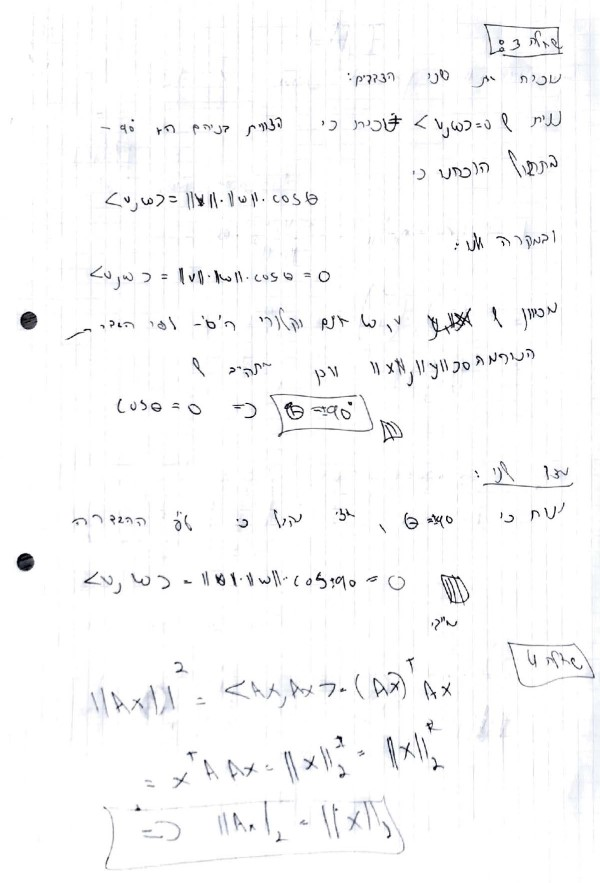 שאלה 3:
נוכיח את שני הצדדים:
נניח ש <v,w>=0 נוכיח כי הזווית ביניהם היא 90° -
בתרגול הוכחנו כי
<v,w> = ||v||·||w||·cosθ
ובמקרה שלנו:
<v,w> = ||v||·||w||·cosθ = 0
מכיוון ש v,w אינם וקטורי ה-0 לפי
הנורמה ולכן מתקיים ש
cosθ = 0 => θ=90°
מצד שני:
נניח כי θ=90, אזי נקבל כי ע"פ ההגדרה
<v,w> = ||v||·||w||·cos90 = 0
מ"ל
שאלה 4
||Ax||² = <Ax,Ax> = (Ax)ᵀ Ax
= xᵀ A Ax = ||x||₂² = ||x||₂²
=> ||Ax||₂ = ||x||₂